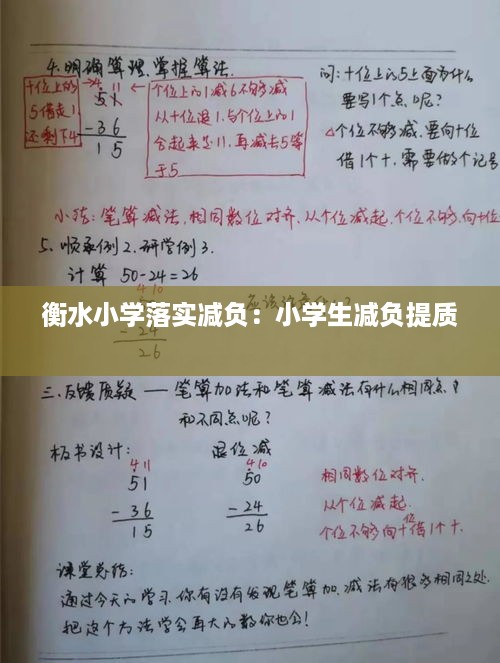 4.明确算理,掌握算法.
十位上的
5借走1
还剩下4
4 11
51
-36
15
个位上的1减6不够减
从十位退1,与个位上的1
合起来是11,再减去6等
于5
问:十位上的5上面为什么
要写1个点呢?
△个位不够减,要向十位
借1个十,需要做个记号
小结:笔算减法,相同数位对齐.从个位减起,个位不够,向十位
5.顺承例2,研学例3.
计算 50-24=26
4 10
衡水小学落实减负:小学生减负提质
-24
26
三.反馈质疑 — 笔算加法和笔算减法有什么相同点
和不同点呢?
板书设计: 退位减
4 11
51
-36
15
4 10
50
-24
26
相同数位对齐.
从个位减起.
个位不够向十位借1个十.
课堂总结:
通过今天的学习,你有没有发现笔算加、减法有很多相同之处.
把这个方法学会再大的数你也会!